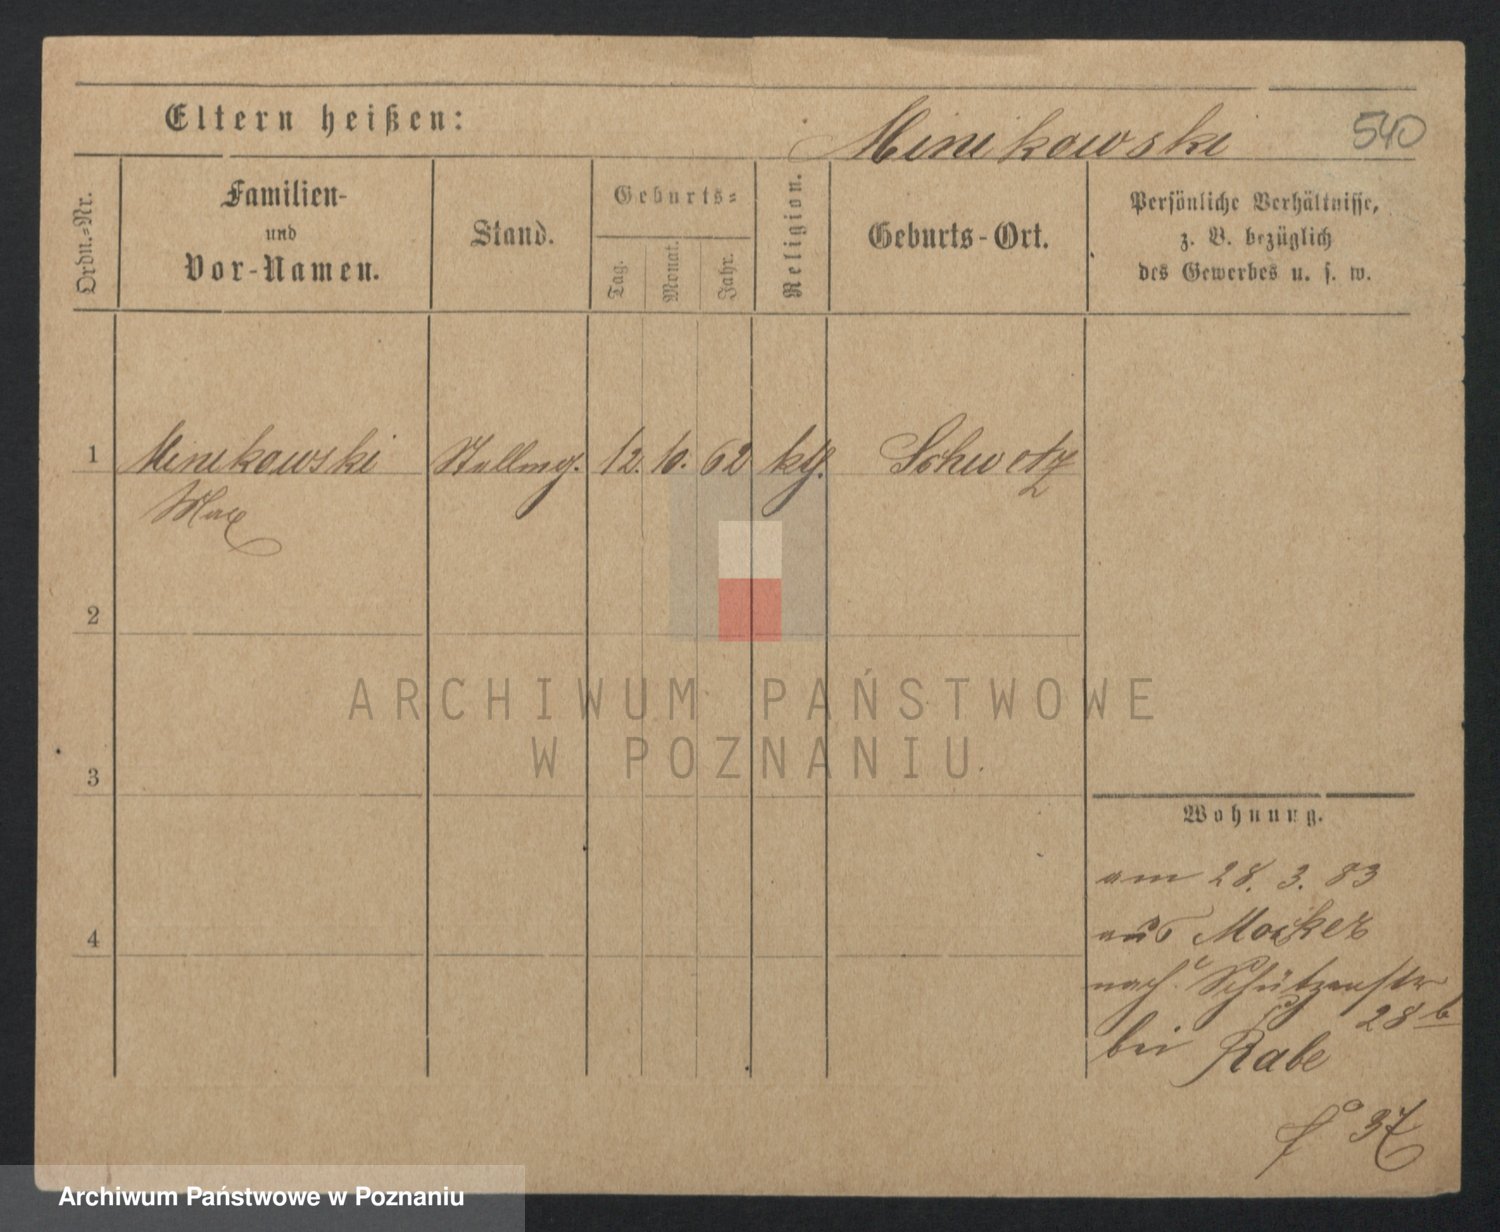 Eltern heißen:
Minikowski
540
Ordn.=Nr.
Familien-
und
Vor-Namen.
Stand.
Geburts=
Tag.
Monat.
Jahr.
Religion.
Geburts-Ort.
Persönliche Verhältnisse,
z. B. bezüglich
des Gewerbes u. s. w.
1 Minikowski 12. 10. 62 kth. Schwetz
Max
2
3
4
Wohnung.
am 28. 3. 83
aus Mocker
nach Schützenstr
28 b
bei Rabe
fo 37
ARCHIWUM PAŃSTWOWE
W POZNANIU
Archiwum Państwowe w Poznaniu